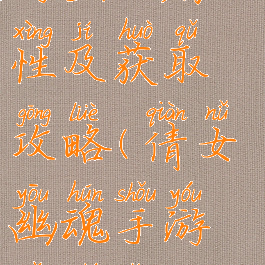 xìng jí huò qǔ
性及获取
gōng lüè qiàn nǚ
攻略(倩女
yōu hún shǒu yóu
幽魂手游